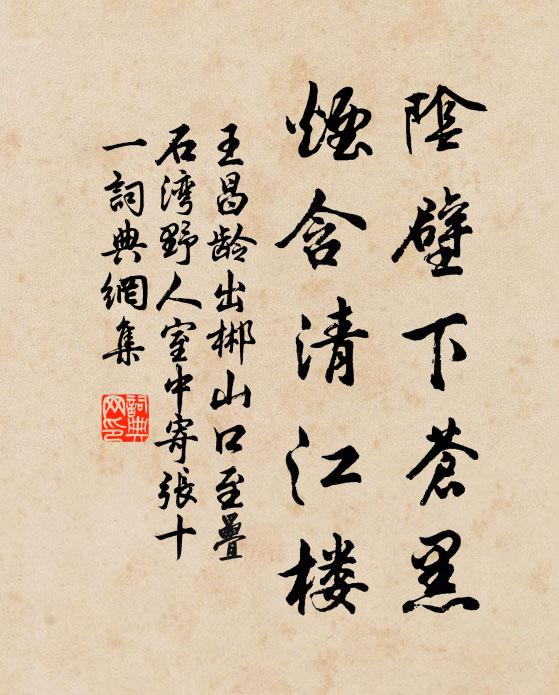 陰壁下蒼黑
煙含清江楼
王昌龄出郴山口至疊
石湾野人室中寄張十
一詞典網集
詞典
网印